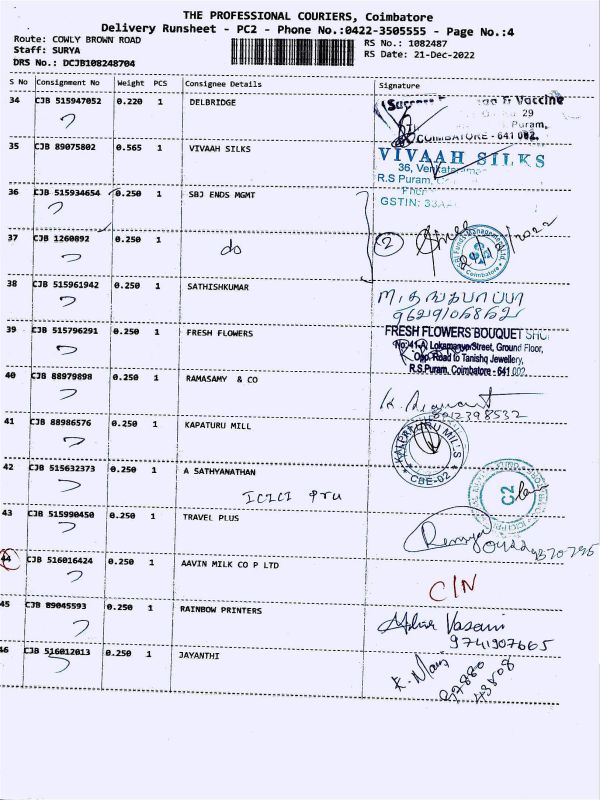 THE PROFESSIONAL COURIERS, Coimbatore
Delivery Runsheet - PC2 - Phone No.:0422-3505555 - Page No.:4
Route: COWLY BROWN ROAD
RS No.: 1082487
Staff: SURYA
RS Date: 21-Dec-2022
DRS No.: DCJB108248704
S No Consignment No Weight PCS Consignee Details Signature
34 CJB 515947052 0.220 1 DELBRIDGE
& Vaccine
29
Puram,
COIMBATORE - 641 002.
35 CJB 89075802 0.565 1 VIVAAH SILKS
VIVAAH SILKS
36, Venkata
R.S Puram,
GSTIN: 33A
36 CJB 515934654 0.250 1 SBJ ENDS MGMT
37 CJB 1260892 0.250 1 do
2
Coimbatore
38 CJB 515961942 0.250 1 SATHISHKUMAR
9629106862
39 CJB 515796291 0.250 1 FRESH FLOWERS
FRESH FLOWERS BOUQUET
No:41-A, Lokamanya Street, Ground Floor,
Opp. Road to Tanishq Jewellery,
R.S.Puram, Coimbatore - 641 002.
40 CJB 88979898 0.250 1 RAMASAMY & CO
41 CJB 88986576 0.250 1 KAPATURU MILL
KALPATURU MILLS
CBE-02
42 CJB 515632373 0.250 1 A SATHYANATHAN
ICICI pru
C2
43 CJB 515990450 0.250 1 TRAVEL PLUS
Remya
44 CJB 516016424 0.250 1 AAVIN MILK CO P LTD
CIN
45 CJB 89045593 0.250 1 RAINBOW PRINTERS
Vasani
9741907665
46 CJB 516012013 0.250 1 JAYANTHI
K. Mani
87880
43808